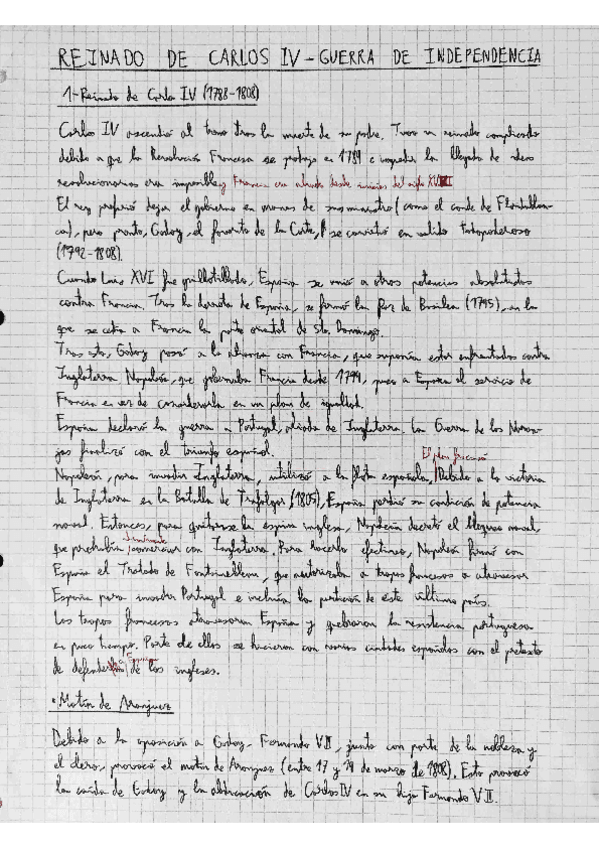 REINADO DE CARLOS IV - GUERRA DE INDEPENDENCIA
1-Reinado de Carlos IV (1788-1808)
Carlos IV ascendió al trono tras la muerte de su padre. Tuvo un reinado complicado
debido a que la Revolución Francesa se produjo en 1789 e impedir la llegada de ideas
revolucionarias era imposible, y Francia era aliada desde inicios del siglo XVIII
El rey prefirió dejar el gobierno en manos de sus ministros (como el conde de Floridablan-
ca), pero pronto, Godoy, el favorito de la Corte, se convirtió en valido todopoderoso
(1792-1808).
Cuando Luis XVI fue guillotinado, España se unió a otras potencias absolutistas
contra Francia. Tras la derrota de España, se firmó la Paz de Basilea (1795), en la
que se cedía a Francia la parte oriental de Sto. Domingo.
Tras esto, Godoy pasó a la alianza con Francia, que suponía estar enfrentados contra
Inglaterra Napoleón, que gobernaba Francia desde 1799, puso a España al servicio de
Francia en vez de considerarla en un plano de igualdad.
España declaró la guerra a Portugal, aliada de Inglaterra. La Guerra de las Naran-
jas finalizó con el triunfo español.
El plan fracasó
Napoleón, para invadir Inglaterra, utilizó a la flota española. Debido a la victoria
de Inglaterra en la Batalla de Trafalgar (1805), España perdió su condición de potencia
naval. Entonces, para quitarse la espina inglesa, Napoleón decretó el bloqueo naval,
que prohibía comerciar con Inglaterra. Para hacerlo efectivo, Napoleón firmó con
España el Tratado de Fontainebleau, que autorizaba a tropas francesas a atravesar
España para invadir Portugal e incluía la partición de este último país.
Las tropas francesas atravesaron España y quebraron la resistencia portuguesa
en poco tiempo. Parte de ellas se hicieron con varias ciudades españolas con el pretexto
de defender a España de los ingleses.
• Motín de Aranjuez
Debido a la oposición a Godoy, Fernando VII, junto con parte de la nobleza y
el clero, provocó el motín de Aranjuez (entre 17 y 19 de marzo de 1808). Esto provocó
la caída de Godoy y la abdicación de Carlos IV en su hijo Fernando VII.